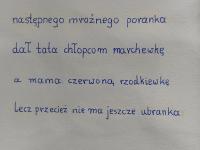 następnego mroźnego poranka
dał tata chłopcom marchewkę
a mama czerwoną rzodkiewkę
lecz przecież nie ma jeszcze ubranka